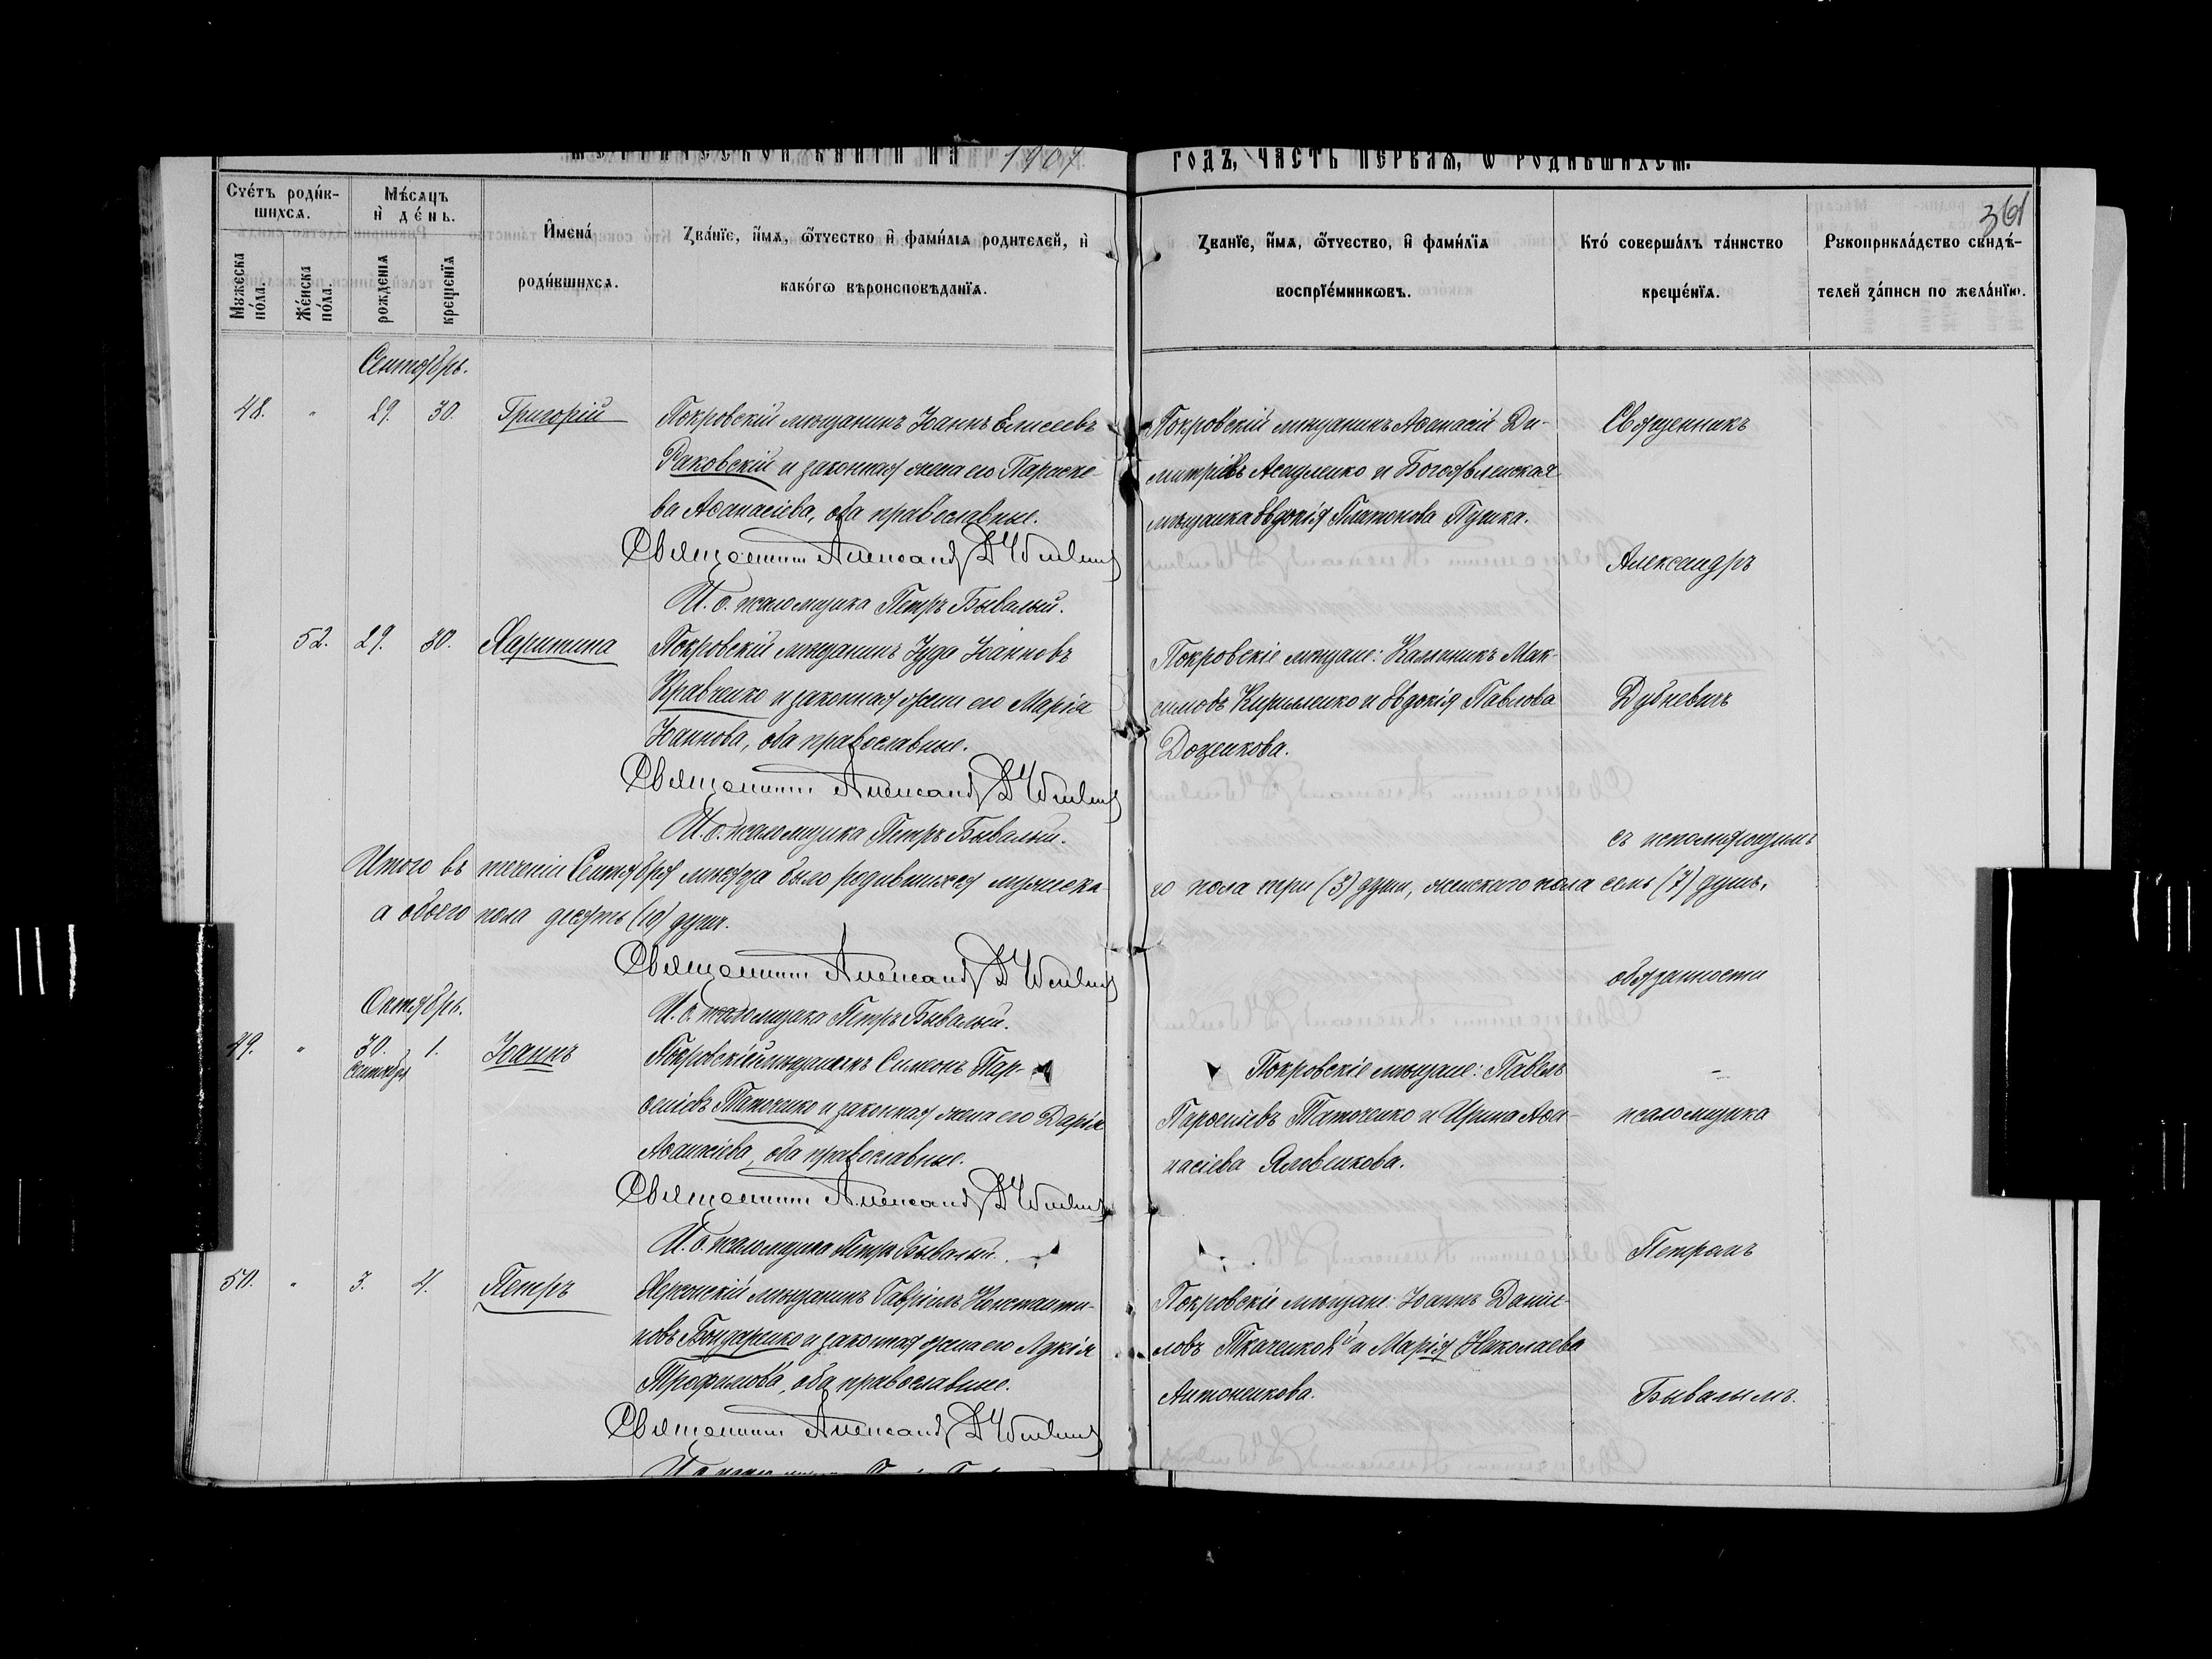 МЕТРИЧЕСКОЙ КНИГИ НА 1907 ГОДЪ, ЧАСТЬ ПЕРВАЯ, Ѡ РОДИВШИХСЯ.
361
Счетъ родив-
шихся.
Мужеска
пола.
Женска
пола.
Мѣсяцъ
и день.
рожденія
крещенія
Имена
родившихся.
Званіе, имя, ѿчество и фамилія родителей, и
какогѡ вѣроисповѣданія.
Званіе, имя, ѿчество, и фамилія
воспріемникѡвъ.
Кто совершалъ таинство
крещенія.
Рукоприкладство свидѣ-
телей записи по желанію.
Сентябрь.
48. " 29. 30. Григорій
Покровскій мѣщанинъ Іоаннъ Елисеевъ
Раковскій и законная жена его Параске-
ва Аѳанасіева, оба православные.
Священникъ Александръ Дубневичъ
И. о. псаломщика Петръ Бывалый.
Покровскій мѣщанинъ Аѳанасій Ди-
митріевъ и Богоявленская
мѣщанка Евдокія Платонова Пушка.
52. 29. 30. Харитина
Покровскій мѣщанинъ Іуда Іоанновъ
Кравченко и законная жена его Марія
Іоаннова, оба православные.
Священникъ Александръ Дубневичъ
И. о. псаломщика Петръ Бывалый.
Покровскіе мѣщане: Каллиникъ Мак-
симовъ Кириленко и Евдокія Павлова
Доценкова.
Итого въ теченіи Сентября мѣсяца было родившихся мужеска-
го пола три (3) души, женскаго пола семь (7) душъ,
а обоего пола десять (10) душъ.
Священникъ Александръ Дубневичъ
И. о. псаломщика Петръ Бывалый.
Октябрь.
49. " 30. Сентября 1. Іоаннъ
Покровскій мѣщанинъ Симеонъ Пар-
ѳеніевъ Таточенко и законная жена его Дарія
Аѳанасіева, оба православные.
Священникъ Александръ Дубневичъ
И. о. псаломщика Петръ Бывалый.
Покровскіе мѣщане: Павелъ
Парѳеніевъ Таточенко и Ирина Аѳа-
насіева Яловенкова.
50. " 3. 4. Петръ
Херсонскій мѣщанинъ Гавріилъ Константи-
новъ Бондаренко и законная жена его Лукія
Трофимова, оба православные.
Священникъ Александръ Дубневичъ
Покровскіе мѣщане: Іоаннъ Даніи-
ловъ Ткаченко и Марія Николаева
Антоненкова.
Священникъ
Александръ
Дубневичъ
съ исполняющимъ
обязанности
псаломщика
Петромъ
Бывалымъ.